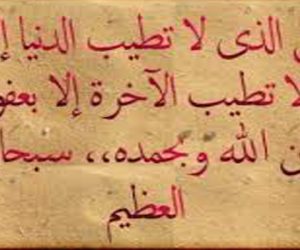 الذى لا تطيب الدنيا إ
لا تطيب الآخرة إلا بعفو
ن الله وبحمده،، سبحا
العظيم